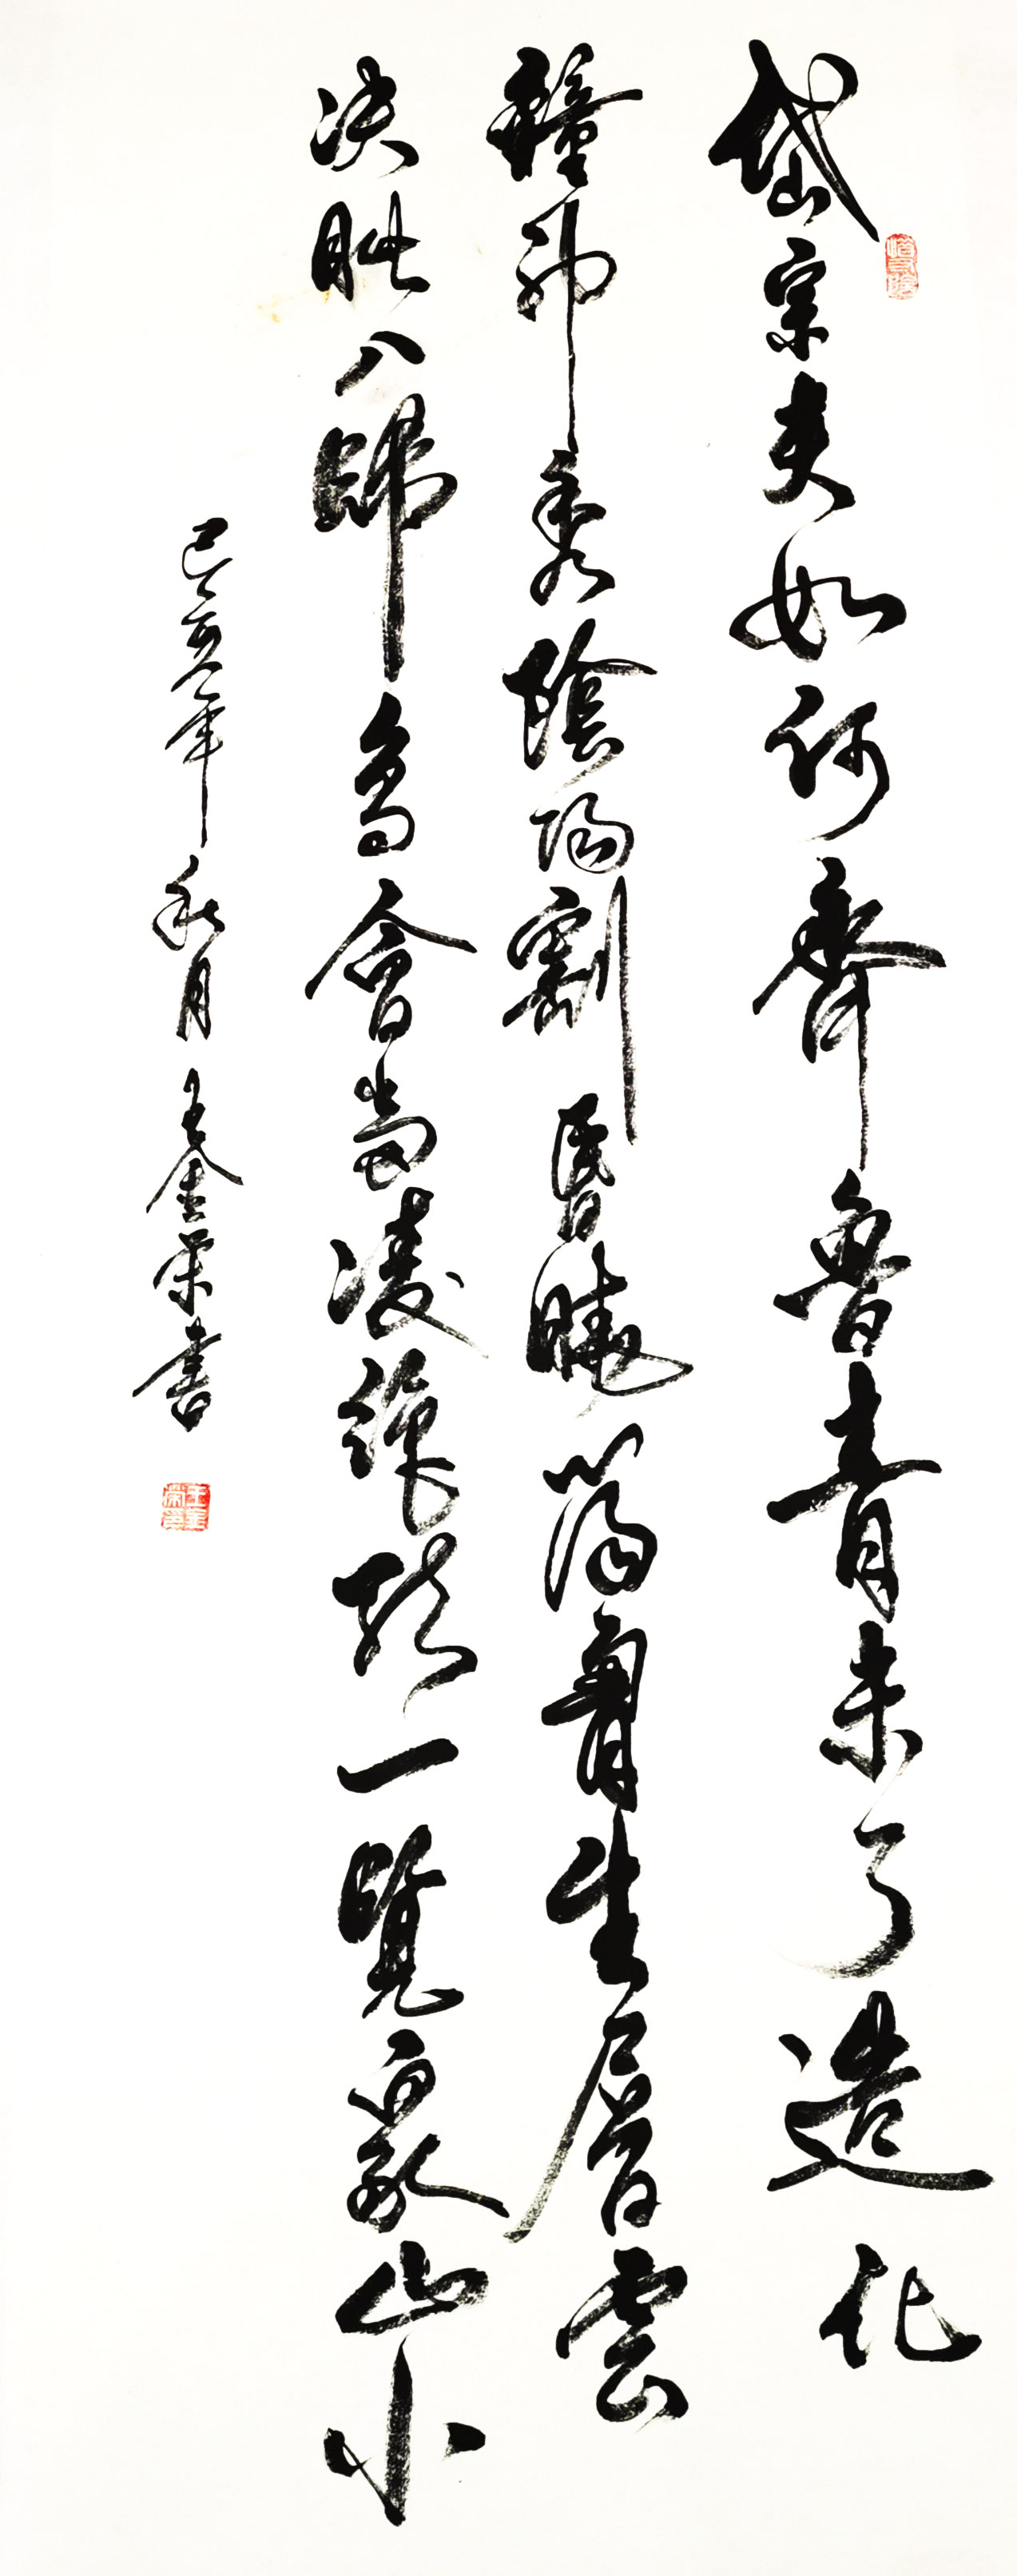 岱宗夫如何齊魯青未了造化
鐘神秀陰陽割昬曉蕩胷生層雲
决眦入歸鳥會當凌絕頂一覽衆山小
己亥年秋月王金榮書
王金榮印